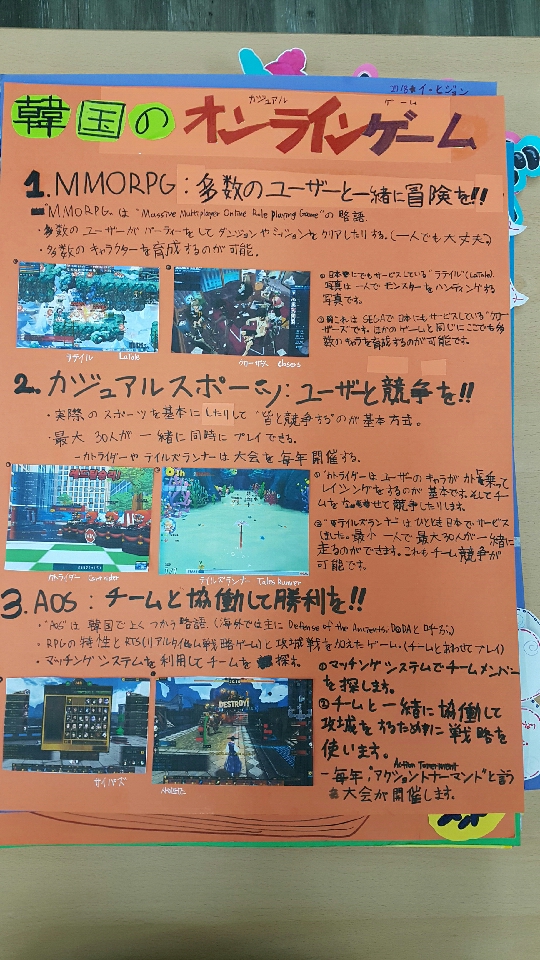 イ・ヒジョン
カジュアル ゲーム
韓国のオンラインゲーム
1. MMORPG : 多数のユーザーと一緒に冒険を!!
"MMORPG"は "Massive Multiplayer Online Role Playing Game"の略語.
・多数のユーザーがパーティーをしてダンジョンやミッションをクリアしたりする.(一人でも大丈夫)
・多数のキャラクターを育成するのが可能.
①日本でもサービスしている"ラテイル"(LaTale).
写真は一人でモンスターをハンティングする
写真です。
これは SEGAで日本にもサービスしている"クロ
ーザーズ"です。ほかのゲームと同じにここでも多
数のキャラを育成するのが可能です。
ラテイル LaTale
クローザーズ Closers
2. カジュアルスポーツ: ユーザーと競争を!!
・実際のスポーツを基本にしたりして"皆と競争する"のが基本方式。
・最大 30人が一緒に同時にプレイできる.
-カトライダーやテイルズランナーは大会を毎年開催する.
①"カトライダーはユーザーのキャラがカトを乗って
レイシングをするのが基本です.そしてチー
ムを 競争したりします.
②"テイルズランナー"は 日本でサービス
最小一人で最大30人が一緒に
走るのができます。これもチーム競争が
可能です.
カトライダー
テイルズランナー Tales Runner
3. AOS : チームと協働して勝利を!!
・"AOS"は韓国でよくつかう略語.(海外では主にDefense of the Ancients: DODAと呼ぶ。)
・RPGの特性とRTS(リアルタイム戦略ゲーム)と攻城戦を加えたゲーム.(チームとあわせてプレイ)
・マッチングシステムを利用してチームを探す。
①マッチングシステムでチームメンバー
を探します。
②チームと一緒に協働して
攻城をするために戦略を
使います。
-毎年,"アクショントナーマンド"と言う
大会が開催します.
DESTROY!
サイパズ